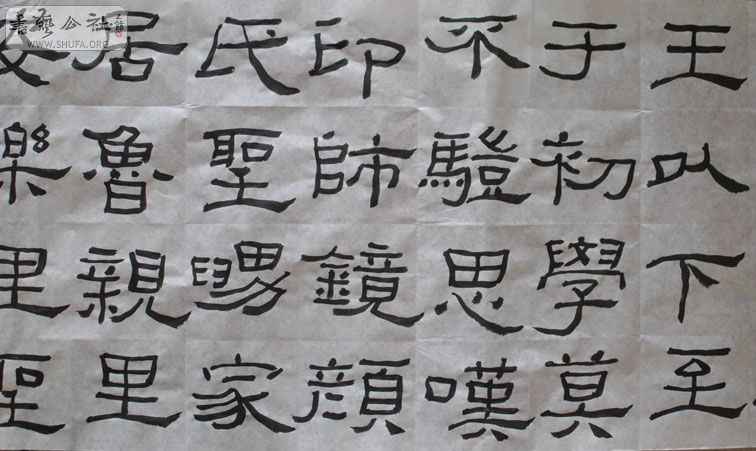 王以下至
于初學莫
不思嘆
印師鏡顏
氏聖舅家
居魯親里
安樂里聖
書藝公社
WWW.SHUFA.ORG